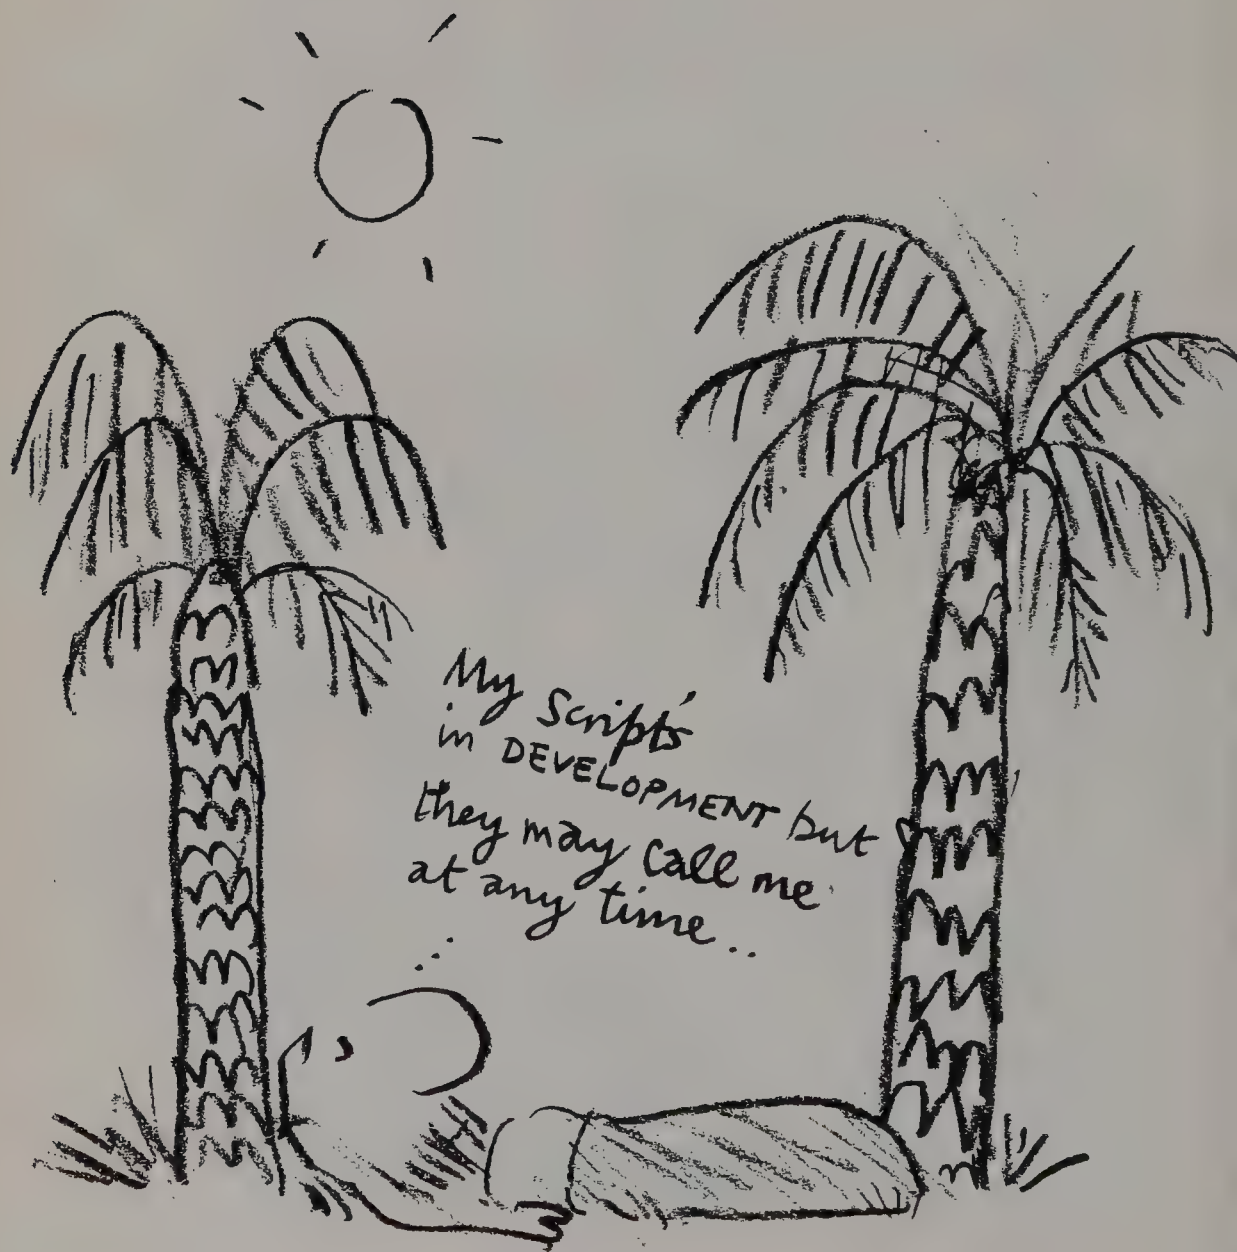 My Script's
in DEVELOPMENT but
they may call me
at any time..